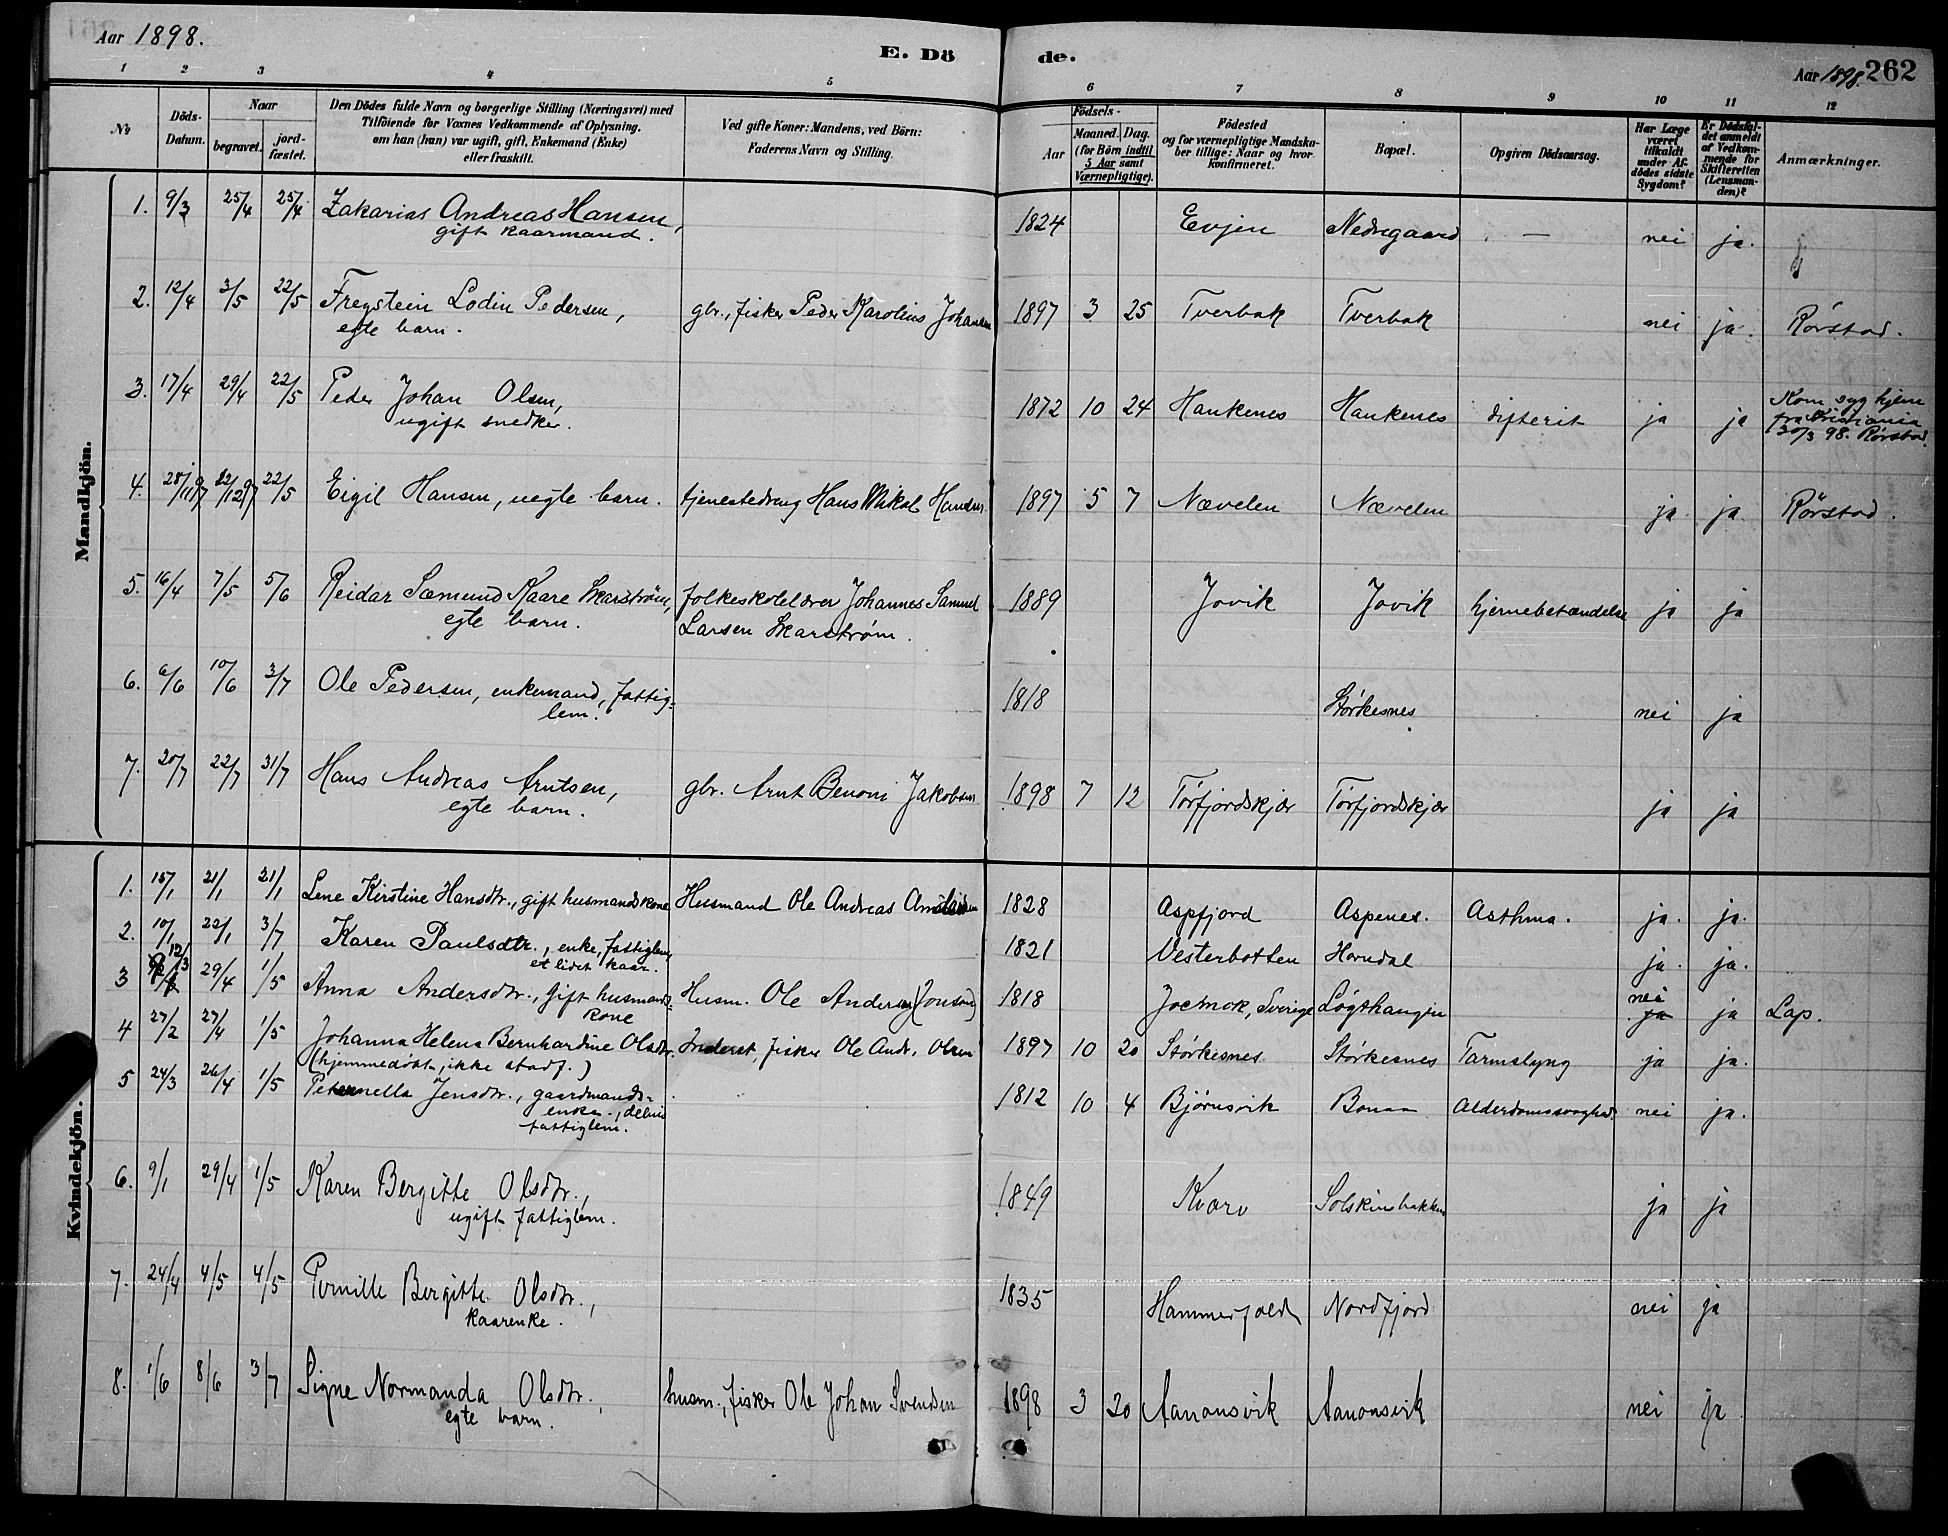 Aar 1898.
E. Dö de.
Aar 1898. 262
1 2 3 4 5 6 7 8 9 10 11 12
No
Döds-Datum.
Naar
begravet.
jord-fæstet.
Den Dödes fulde Navn og borgerlige Stilling (Næringsvei) med
Tilföiende for Voxnes Vedkommende af Oplysning,
om han (hun) var ugift, gift, Enkemand (Enke)
eller fraskilt.
Ved gifte Koner: Mandens, ved Börn:
Faderens Navn og Stilling.
Födsels-
Aar
Maaned. Dag.
(for Börn indtil
5 Aar samt
Værnepligtige).
Födested
og for værnepligtige Mandska-
ber tillige: Naar og hvor
konfirmeret.
Bopæl.
Opgiven Dödsaarsag.
Har Læge
været
tilkaldt
under Af-
dödes sidste
Sygdom?
Er Dödsfal-
det anmeldt
af Vedkom-
mende for
Skifteretten
(Lensman-
den)?
Anmærkninger.
Mandkjön.
1. 9/3 25/4 25/4 Zakarias Andreas Hansen, 1824 Evjen Nedregaard — nei ja.
gift kaarmand.
2. 12/4 3/5 22/5 Freystein Lodin Pedersen, gbr., fisker Peder Karolius Johansen 1897 3 25 Tverbak Tverbak nei ja. Rørstad.
egte barn.
3. 17/4 29/4 22/5 Peder Johan Olsen, 1872 10 24 Haukenes Haukenes difterit ja ja Kom syg hjem
ugift snedker. fra Kristiania
30/3 98. Rørstad.
4. 28/11 97 22/12 97 22/5 Eigil Hansen, uegte barn. tjenestedreng Hans Mikal Hansen 1897 5 7 Nævelen Nævelen ja ja Rørstad.
5. 16/4 7/5 5/6 Reidar Sæmund Kaare Skarstrøm, folkeskolelærer Johannes Samuel 1889 Jovik Jovik hjernebetændelse ja ja
egte barn. Larsen Skarstrøm.
6. 6/6 10/6 3/7 Ole Pedersen, enkemand, fattig- 1818 Størkesnes nei ja
lem.
7. 20/7 22/7 31/7 Hans Andreas Arntsen, gbr. Arnt Benoni Jakobsen 1898 7 12 Tørfjordskjær Tørfjordskjær ja ja
egte barn.
Kvindekjön.
1. 15/1 21/1 21/1 Lene Kirstine Hansdtr., gift husmandskone Husmand Ole Andreas 1828 Aspfjord Aspenes. Asthma. ja. ja.
2. 10/1 22/1 3/7 Karen Paulsdtr., enke, fattiglem, 1821 Vesterbotten Horndal ja. ja.
et lidet kaar.
3 12/3 29/4 1/5 Anna Andersdtr., Gift husmands- Husm. Ole Andersen (Jonson) 1818 Jocmok, Sverige Løgthaugen nei ja ja Lap.
kone
4 27/2 27/4 1/5 Johanna Helena Bernhardine Olsdtr. Inderst, fisker Ole Andr. Olsen 1897 10 20 Størkesnes Størkesnes Tarmslyng ja ja.
(hjemmedøbt, ikke stadf.)
5 24/3 26/4 1/5 Peternella Jensdtr., gaardmands- 1812 10 4 Bjørnsvik Bonaa Alderdomssvaghed nei ja.
enke, delvis
fattiglem.
6. 9/1 29/4 1/5 Karen Bergitte Olsdtr., 1849 Kvarv Solskinsbakken ja ja
ugift fattiglem.
7. 24/4 4/5 4/5 Pernille Bergitte Olsdtr., 1835 Hammerfald Nordfjord nei ja
kaarenke.
8. 1/6 8/6 3/7 Signe Normanda Olsdtr., husm., fisker Ole Johan Svendsen 1898 3 20 Aanonsvik Aanonsvik nei ja
egte barn.